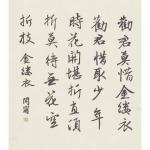 勸君莫惜金縷衣
勸君惜取少年
時花開堪折直須
折莫待無花空
折枝 金縷衣